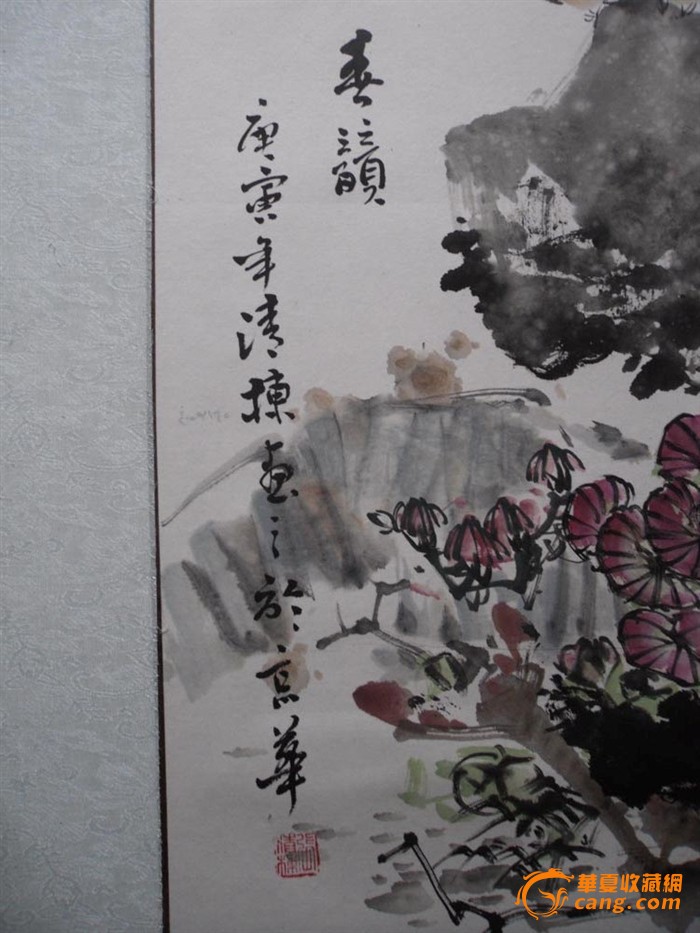 春韻
庚寅年清棟画之於京華
華夏收藏網
cang.com